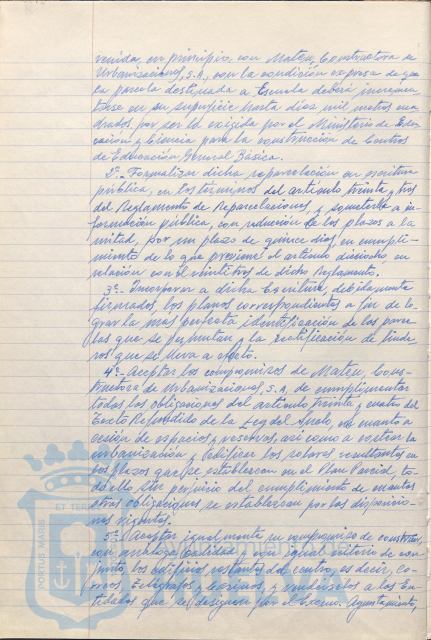 venida, en principio, con Mateu, Constructora de
Urbanizaciones, S.A., con la condición expresa de que
la parcela destinada a Escuela deberá incremen-
tarse en su superficie hasta diez mil metros cua-
drados, por ser la exigida por el Ministerio de Edu-
cación y Ciencia para la construcción de Centros
de Educación General Básica.
2º.- Formalizar dicha reparcelación en escritura
pública, en los términos del artículo treinta y tres
del Reglamento de Reparcelaciones, y someterla a in-
formación pública, con reducción de los plazos a la
mitad, por un plazo de quince días, en cumpli-
miento de lo que previene el artículo dieciocho, en
relación con el veintitres de dicho Reglamento.
3º.- Incorporar a dicha Escritura, debidamente
firmados, los planos correspondientes a fin de lo-
grar la más perfecta identificación de las parce-
las que se permutan y la rectificación de linde-
ros que se lleva a efecto.
4º.- Aceptar los compromisos de Mateu, Cons-
tructora de Urbanizaciones, S.A., de cumplimentar
todas las obligaciones del artículo treinta y cuatro del
Texto Refundido de la Ley del Suelo, en cuanto a
cesión de espacios y reservas, así como a costear la
urbanización y edificar los solares resultantes en
los plazos que se establezcan en el Plan Parcial, to-
do ello sin perjuicio del cumplimiento de cuantas
otras obligaciones se establezcan por las disposicio-
nes vigentes.
5º.- Aceptar igualmente su compromiso de construir,
con análoga calidad y con igual criterio de con-
junto, los edificios restantes del centro, es decir, Co-
rreos, Telégrafos y Casinos, y venderselos a las En-
tidades que se designen por el Excmo. Ayuntamiento,
PORTUS MARIS ET TERRAE